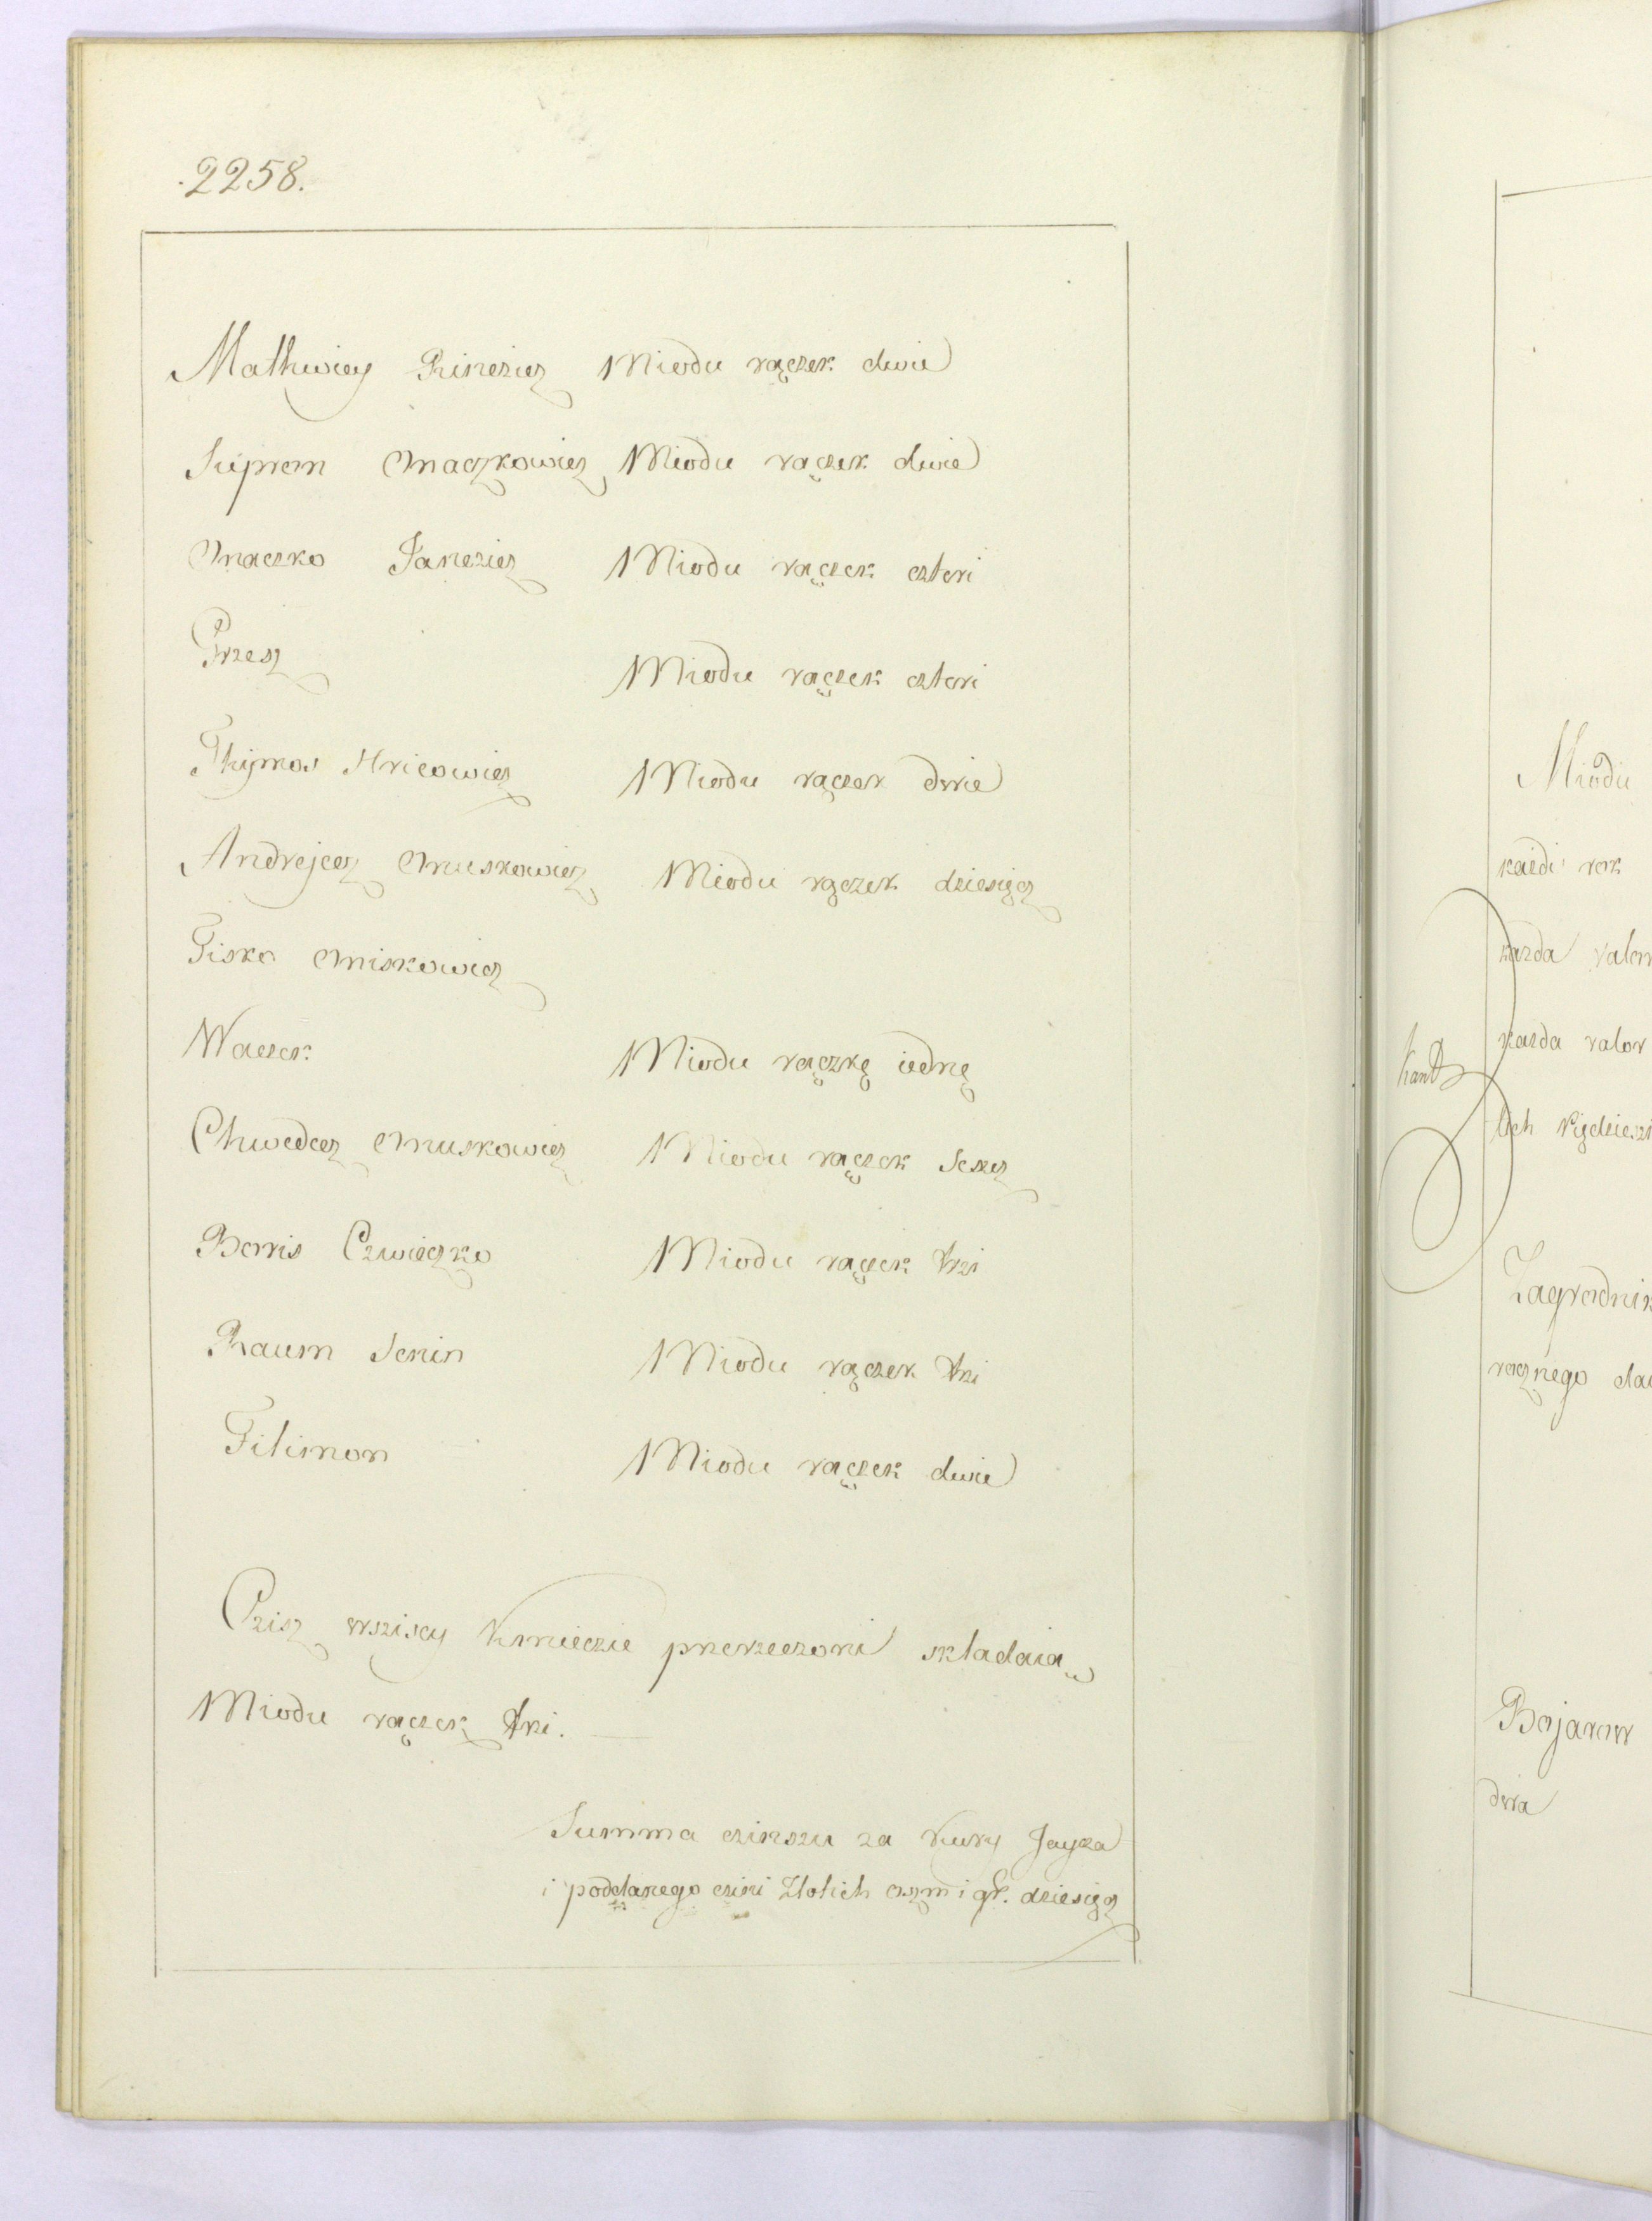 2258.
Mathwiey Rinczicz Miodu rączek dwie
Suprom Maczkowicz Miodu rączek dwie
Maczko Janczicz Miodu rączek czteri
Grzesz Miodu rączek czteri
Thymos Hricowicz Miodu rączek dwie
Andrejcez Muskowicz Miodu rączek dziesięcz
Fisko Miskowicz
Waczek Miodu rączkę iednę
Chwedcez Muskowicz Miodu rączek Sescz
Borris Czwieczko Miodu rączek trzi
Raum Senin Miodu rączek trzi
Filimon Miodu rączek dwie
Czisz wsziscy Kmieczie przerzeczoni składaią
Miodu rączek trzi.
Summa czinszu za kury Jayza
i poddanego czini Złotich oszm i gr. dziesięcz
Miodu
każdi rok
kazda valor
kazda valor
Kant
lich
Zagrodnik
rocznego
Bojarow
dwa